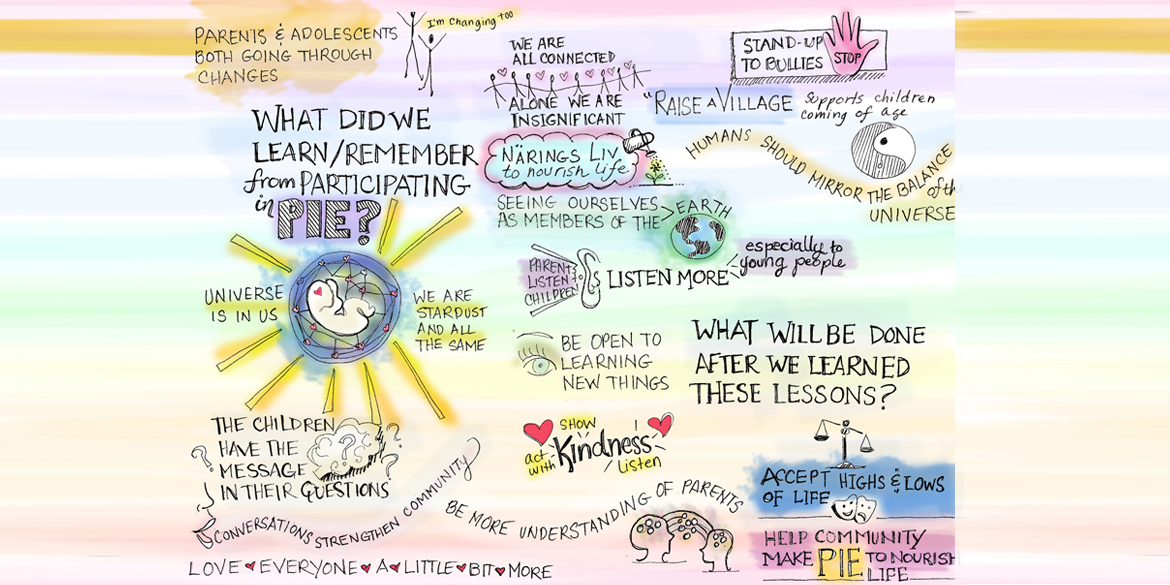 PARENTS & ADOLESCENTS
BOTH GOING THROUGH
CHANGES
I'm changing too
WHAT DID WE
LEARN/REMEMBER
from PARTICIPATING
in PIE?
UNIVERSE
IS IN US
WE ARE
STARDUST
AND ALL
THE SAME
THE CHILDREN
HAVE THE
MESSAGE
IN THEIR QUESTIONS
? ? ? ? ?
CONVERSATIONS STRENGTHEN COMMUNITY
LOVE EVERYONE A LITTLE BIT MORE
WE ARE
ALL CONNECTED
ALONE WE ARE
INSIGNIFICANT
NÄRINGS LIV
to nourish life
SEEING OURSELVES
AS MEMBERS OF THE > EARTH
PARENTS
LISTEN TO
CHILDREN
LISTEN MORE
especially to
young people
BE OPEN TO
LEARNING
NEW THINGS
SHOW
act with Kindness
listen
BE MORE UNDERSTANDING OF PARENTS
STAND-UP
TO BULLIES
STOP
"RAISE A VILLAGE
supports children
coming of age
HUMANS SHOULD MIRROR THE BALANCE
of the
UNIVERSE
WHAT WILL BE DONE
AFTER WE LEARNED
THESE LESSONS?
ACCEPT HIGHS & LOWS
OF LIFE
HELP COMMUNITY
MAKE PIE TO NOURISH
LIFE